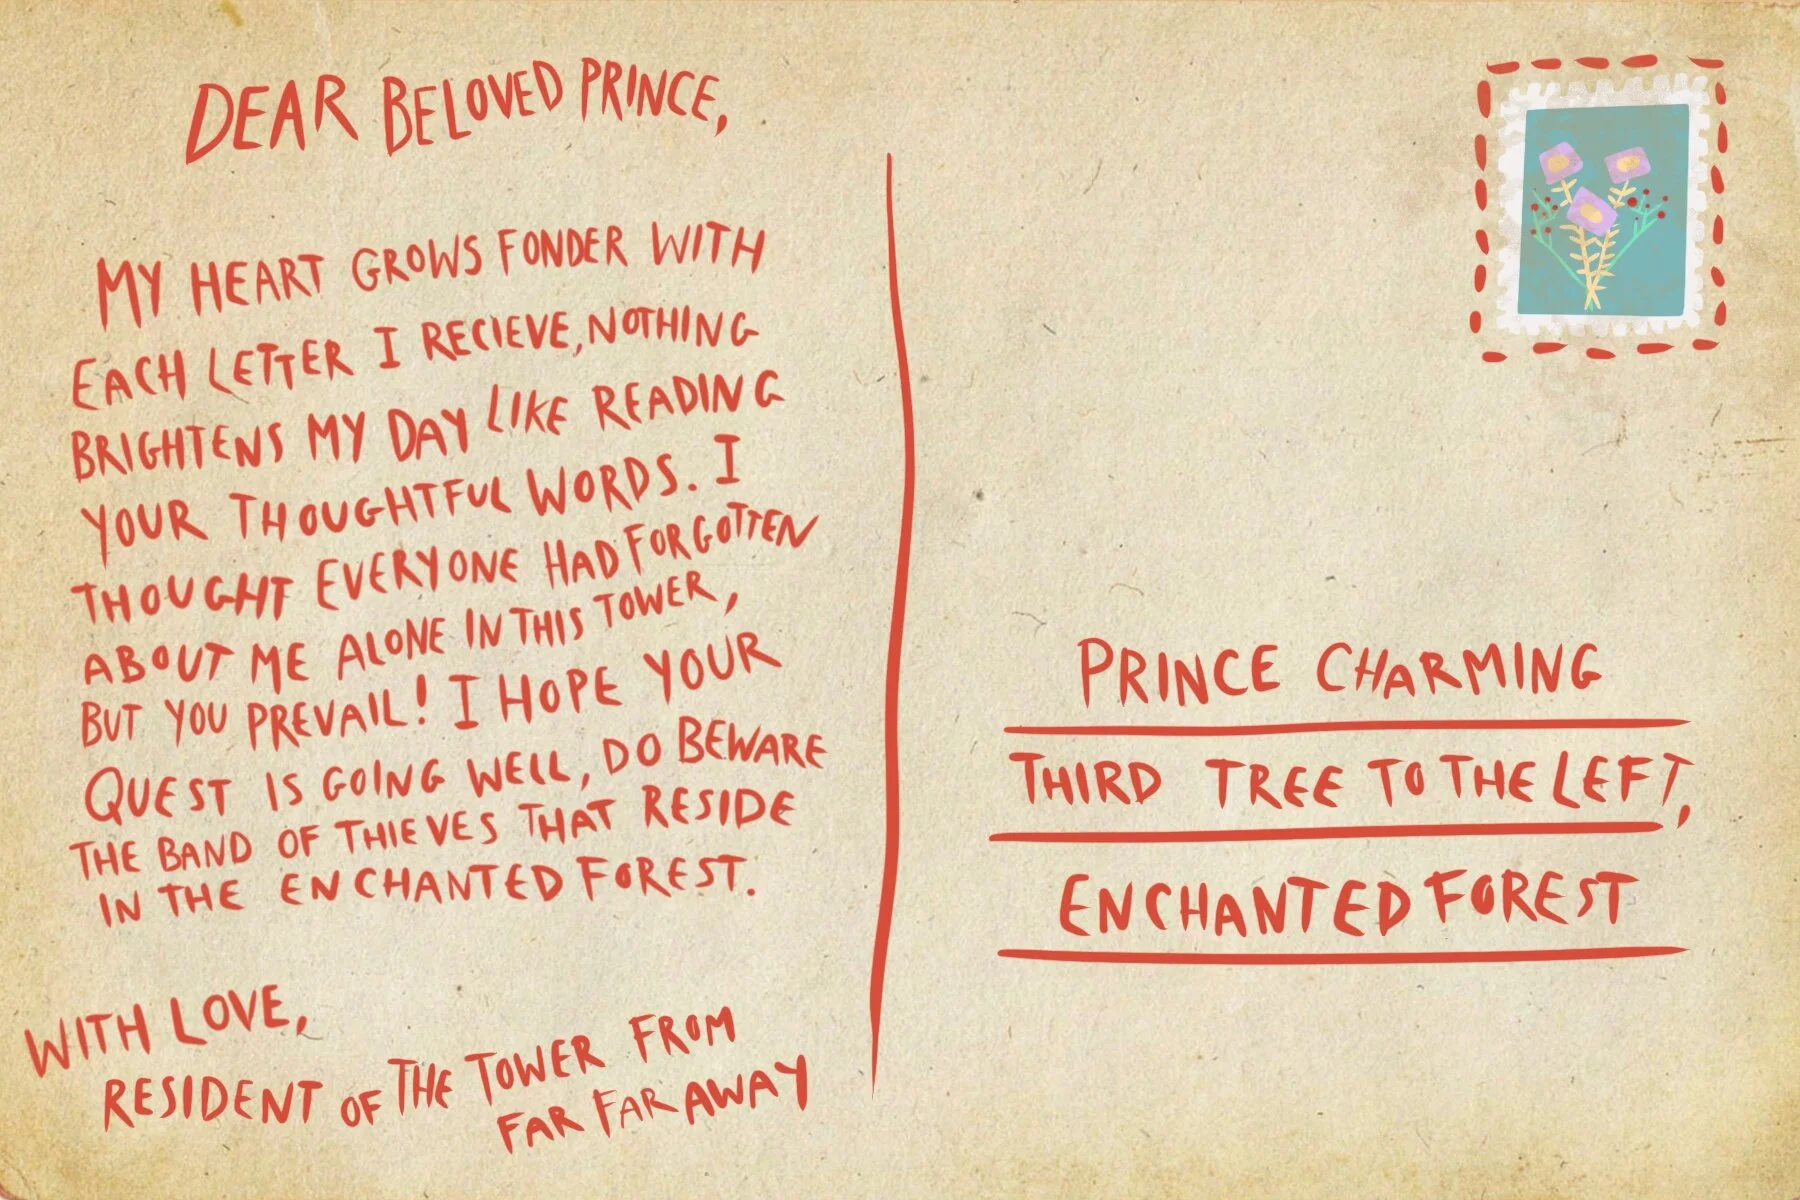 DEAR BELOVED PRINCE,
MY HEART GROWS FONDER WITH
EACH LETTER I RECIEVE, NOTHING
BRIGHTENS MY DAY LIKE READING
YOUR THOUGHTFUL WORDS. I
THOUGHT EVERYONE HAD FORGOTTEN
ABOUT ME ALONE IN THIS TOWER,
BUT YOU PREVAIL! I HOPE YOUR
QUEST IS GOING WELL, DO BEWARE
THE BAND OF THIEVES THAT RESIDE
IN THE ENCHANTED FOREST.
WITH LOVE,
RESIDENT OF THE TOWER FROM
FAR FAR AWAY
PRINCE CHARMING
THIRD TREE TO THE LEFT,
ENCHANTED FOREST